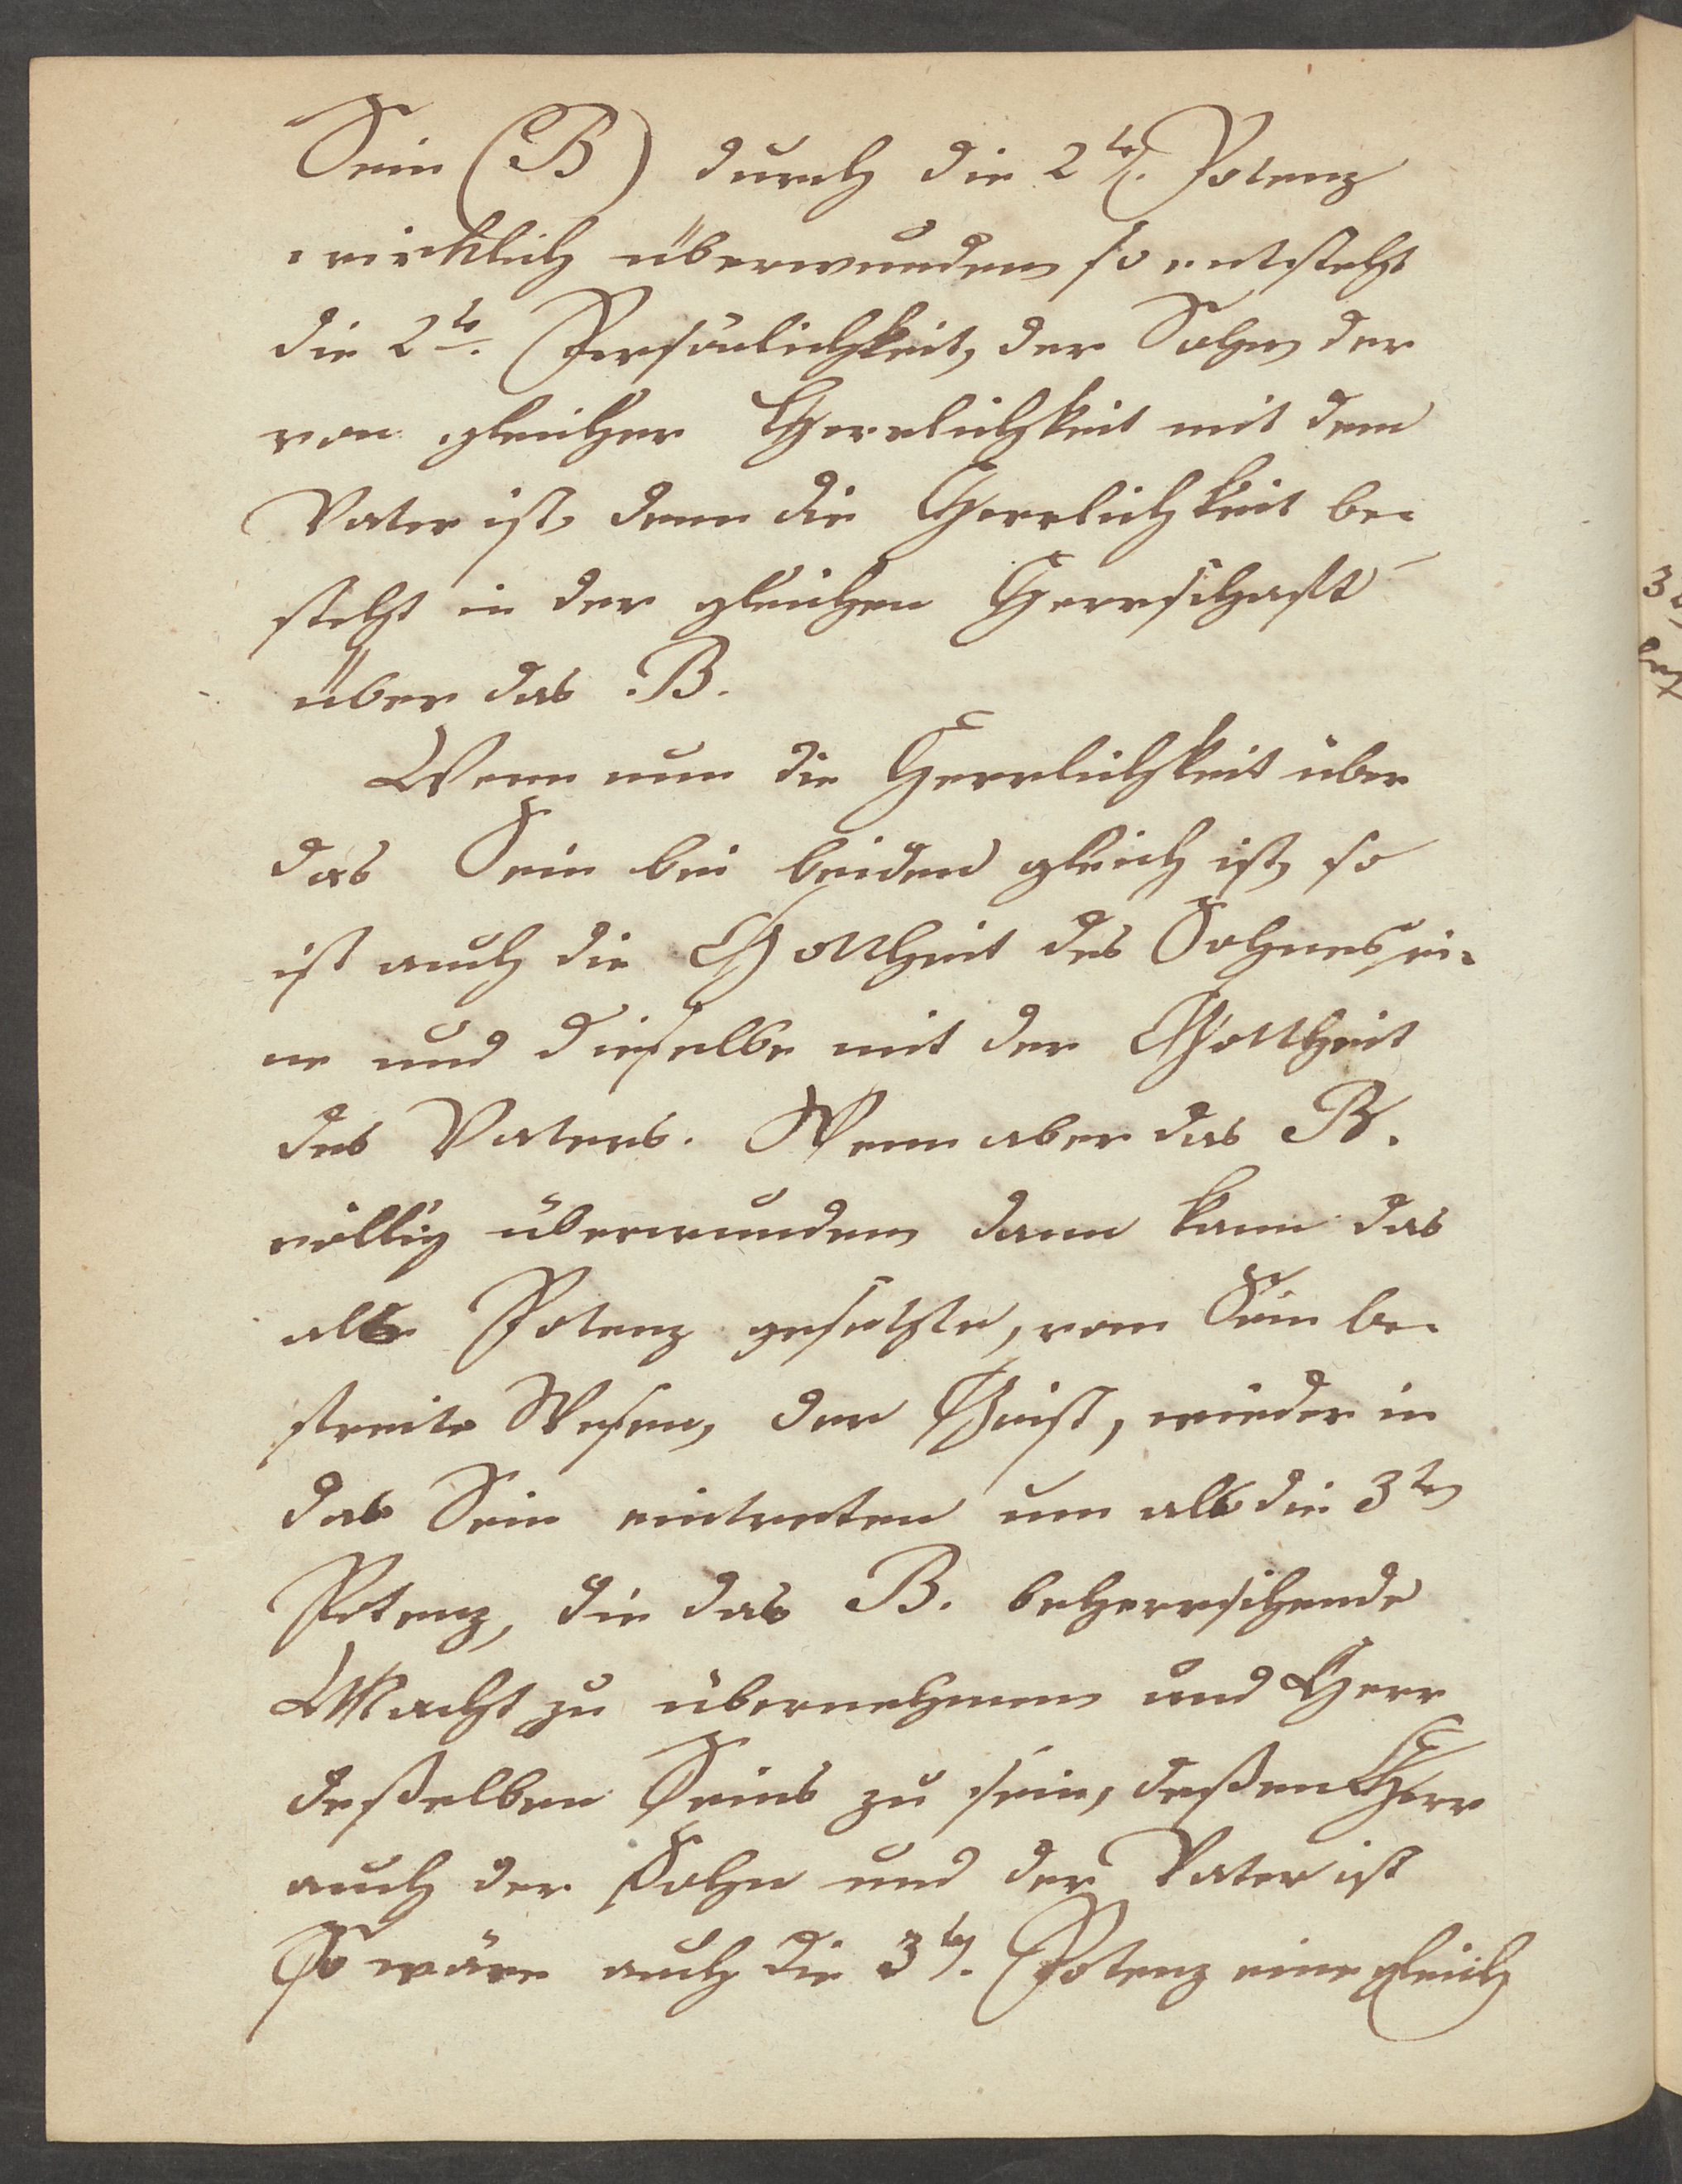 Sein (B) durch die 2te. Potenz
wirklich überwunden so entsteht
die 2te. Persönlichkeit, der Sohn der
von gleicher Herrlichkeit mit dem
Vater ist, denn die Herrlichkeit be-
steht in der gleichen Herrschaft
über das B.
Wenn nun die Herrlichkeit über
das Sein bei beiden gleich ist, so
ist auch die Gottheit des Sohnes ei-
ne und dieselbe mit der Gottheit
des Vaters. Wenn aber das B.
völlig überwunden dann kann das
als Potenz gesetzte, vom Sein be-
freite Wesen, der Geist, wieder in
das Sein eintreten um als die 3te
Potenz, die das B. beherrschende
Macht zu übernehmen und Herr
deßelben Seins zu sein, deßen Herr
auch der Sohn und der Vater ist
So wäre auch die 3te. Potenz eine gleich